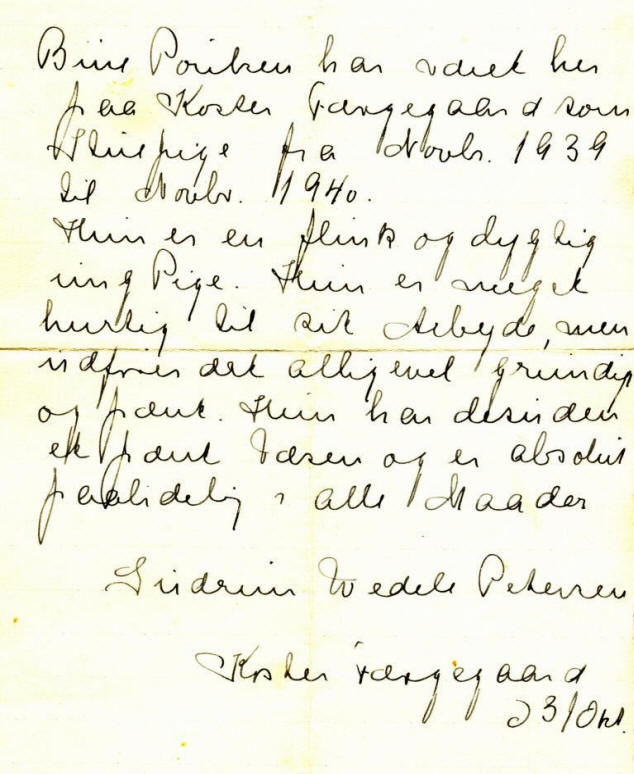 Bine Poulsen har været her
paa Koster Færgegaard som
Stuepige fra Novbr. 1939
til Novbr. 1940.
Hun er en flink og dygtig
ung Pige. Hun er meget
hurtig til sit Arbejde, men
udfører det alligevel grundig
og pænt. Hun har desuden
et pænt Væsen og er absolut
paalidelig i alle Maader
Gudrun Wedele Petersen
Koster Færgegaard
23/Okt.